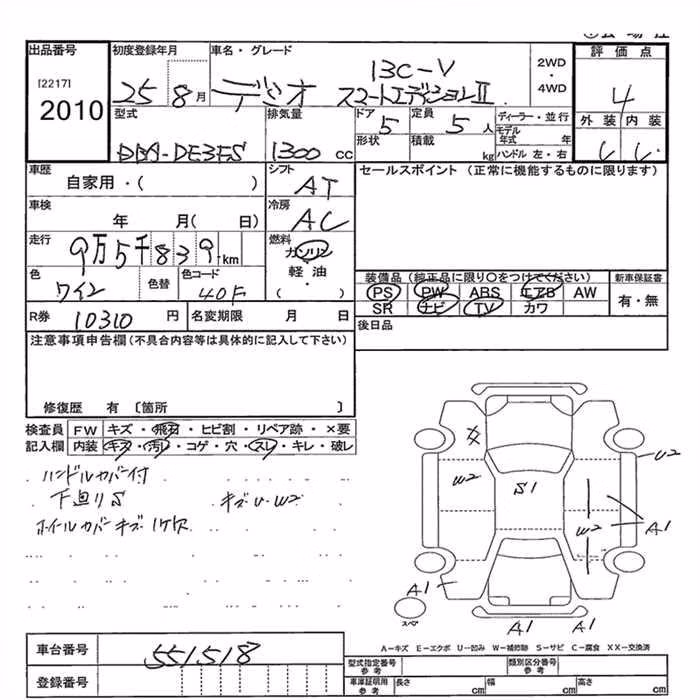 出品番号 初度登録年月 車名・グレード 評価点
[2217]
2010
25 8月 デミオ 13C-V
スマートエディションII
2WD
・
4WD
4
外装 内装
型式 排気量 ドア 定員 ディーラー・並行
DBA-DE3FS 1300 cc 5 5人
モデル年式 年
形状 積載 kg ハンドル 左・右
車歴 シフト セールスポイント (正常に機能するものに限ります)
自家用・( ) AT
車検 冷房
年 月( 日) AC
走行 燃料
9万5千839km ガソリン
軽油
( )
色 色替 色コード
ワイン 40F
装備品(純正品に限り○をつけてください) 新車保証書
PS PW ABS エアB AW 有・無
SR ナビ TV カワ
R券 10310 円 名変期限 月 日 後日品
注意事項申告欄(不具合内容等は具体的に記入して下さい)
修復歴 有 〔箇所 〕
検査員 FW キズ・飛石・ヒビ割・リペア跡・×要
記入欄 内装 キズ・汚レ・コゲ・穴・スレ・キレ・破レ
ハンドルカバー付
下廻りS キズU・W2
ホイルカバーキズ・1ケ欠
U2
W2
S1
W2
A1
A1
スペア
A1 A1
A-キズ E-エクボ U-凹み W-補修跡 S-サビ C-腐食 XX-交換済
車台番号 551518
登録番号
型式指定番号 参考 類別区分番号 参考
車庫証明用 参考 長さ cm 幅 cm 高さ cm